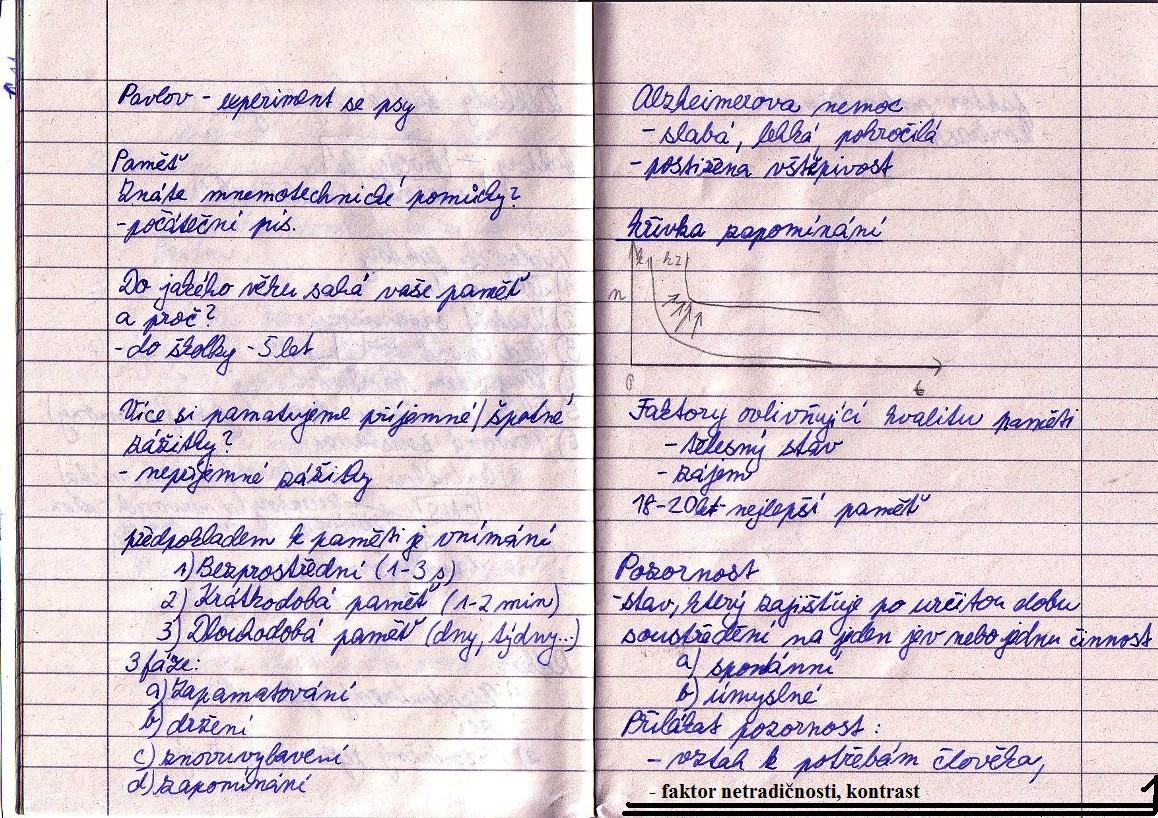 Pavlov - experiment se psy
Paměť
Znáte mnemotechnické pomůcky?
- počáteční pís.
Do jakého věku sahá vaše paměť
a proč?
- do školky - 5 let
Více si pamatujeme příjemné / špatné
zážitky?
- nepříjemné zážitky
předpokladem k paměti je vnímání
1) Bezprostřední (1-3 s)
2) Krátkodobá paměť (1-2 min)
3) Dlouhodobá paměť (dny, týdny...)
3 fáze:
a) zapamatování
b) držení
c) znovuvybavení
d) zapomínání
Alzheimerova nemoc
- slabá, lehká, pokročilá
- postižena vštěpivost
křivka zapomínání
k1 k2
n
0 t
Faktory ovlivňující kvalitu paměti
- tělesný stav
- zájem
18-20 let - nejlepší paměť
Pozornost
- stav, který zajišťuje po určitou dobu
soustředění na jeden jev nebo jednu činnost
a) spontánní
b) úmyslné
Přilákat pozornost:
- vztah k potřebám člověka,
- faktor netradičnosti, kontrast
1